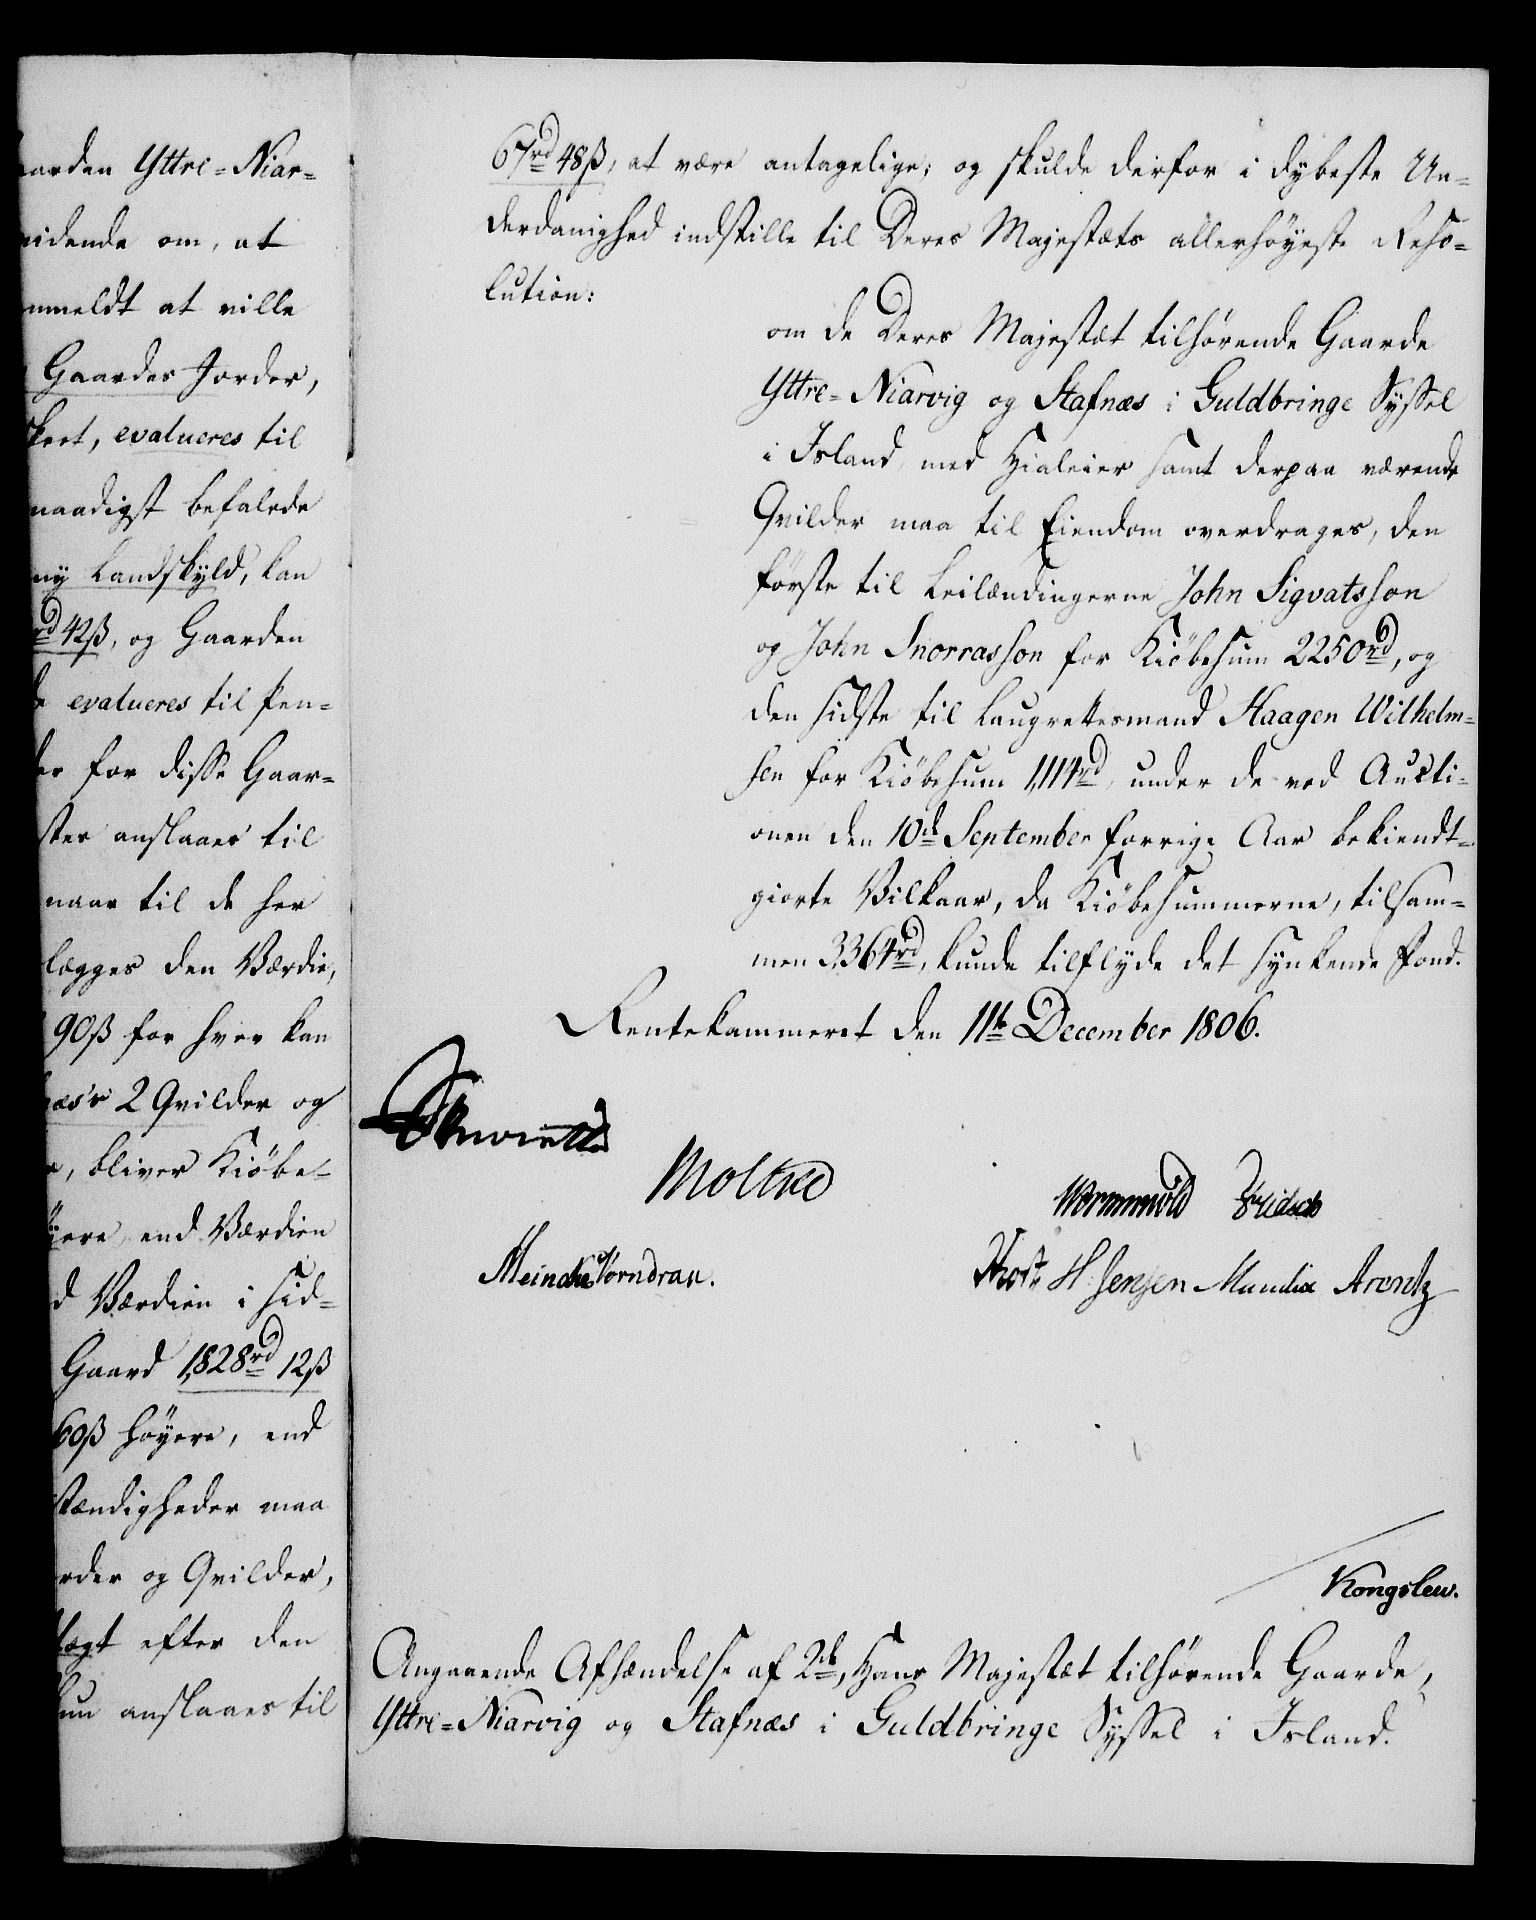 aarden Yttre-Niar-
vidende om, at
nmeldt at ville
Gaardes Jorder,
skort, evalueres til
naadigst befalede
ny Landskyld, kan
rd 42ß, og Gaarden
evalueres til Pen-
er for disse Gaar-
ster anslaaes til
naar til de her
lægges den Værdie,
90ß for hver kan
næs's 2 Qvilder og
, bliver Kiöbe-
ere end Værdien
d Værdien i Sid-
Gaard 1,828rd 12ß
60ß höyere, end
stændigheder maa
rder og Qvilder,
lagt efter den
kun anslaaes til
67rd 48ß, at være antagelige; og skulde derfor i dybeste Un-
derdanighed indstille til Deres Majestæts allerhöyeste Reso-
lution:
om de Deres Majestæt tilhörende Gaarde
Yttre-Niarvig og Stafnæs i Guldbringe Syssel
i Island, med Hialeier samt derpaa værende
Qvilder maa til Eiendom overdrages, den
förste til Leilændingerne John Sigvatsson
og John Snorrasson for Kiöbesum 2250rd, og
den sidste til Laugrettesmand Haagen Wilhelm-
sen for Kiöbesum 1,114rd, under de ved Aucti-
onen den 10de September forrige Aar bekiendt-
giorte Vilkaar, da Kiöbesummerne, tilsam-
men 3,364rd, kunde tilflyde det synkende Fond.
Rentekammeret den 11te December 1806.
Moltke
Wormskiold
Meincke Vorndran.
H. Jensen Mandix Arentz
Kongslew.
Angaaende Afhændelse af 2de, Hans Majestæt tilhörende Gaarde,
Yttre-Niarvig og Stafnæs i Guldbringe Syssel i Island.